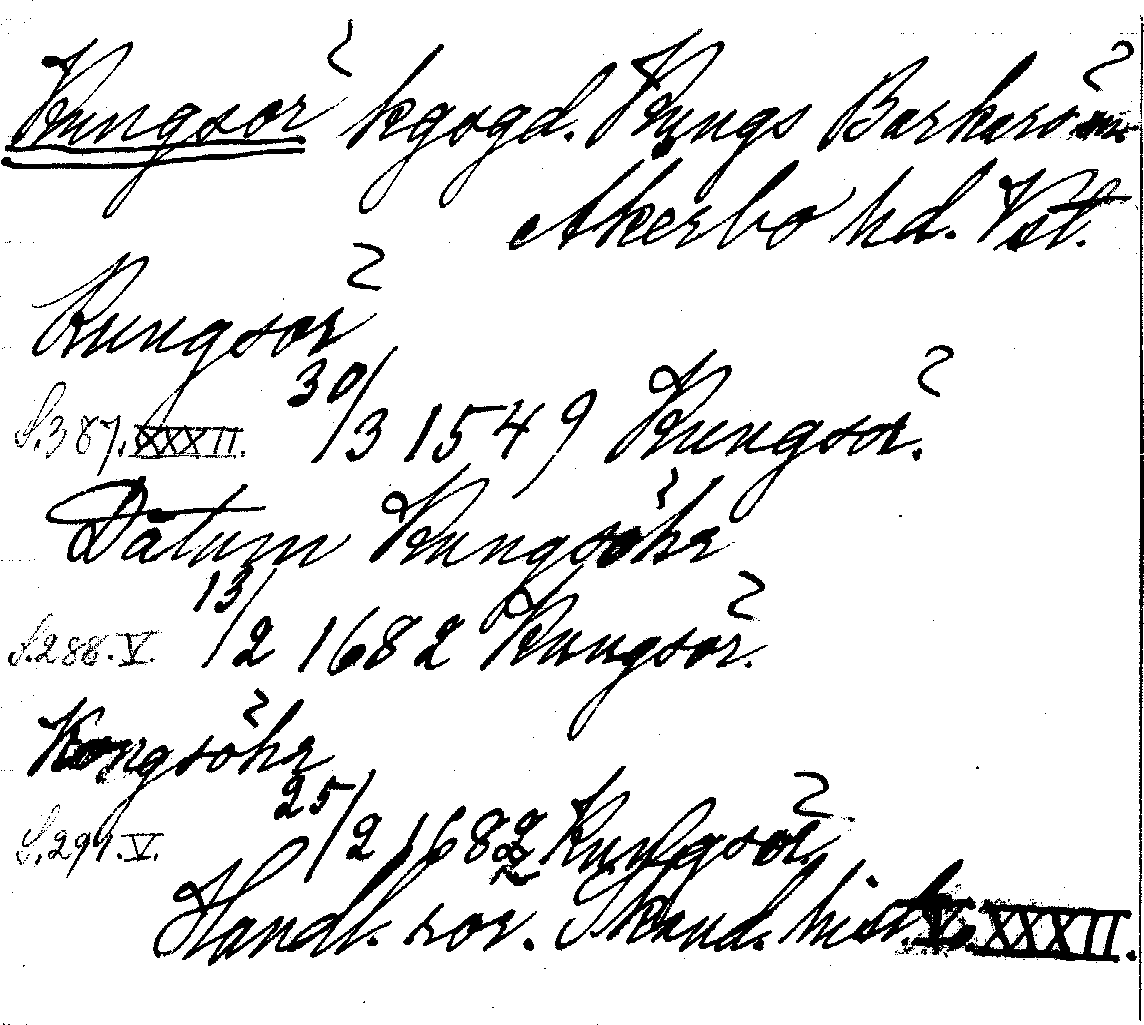 Kungsör kgsgd. Kungs Barkarö sn.
Åkerbo hd. Vstl.
Kungsör
S.387.XXXII. 30/3 1549 Kungsör.
Datum Kungsöhr
S.288.V. 13/2 1682 Kungsör.
Kongsöhr
S.291.V. 25/2 1682 Kungsör.
Handl. rör. Skand. hist. V. XXXII.